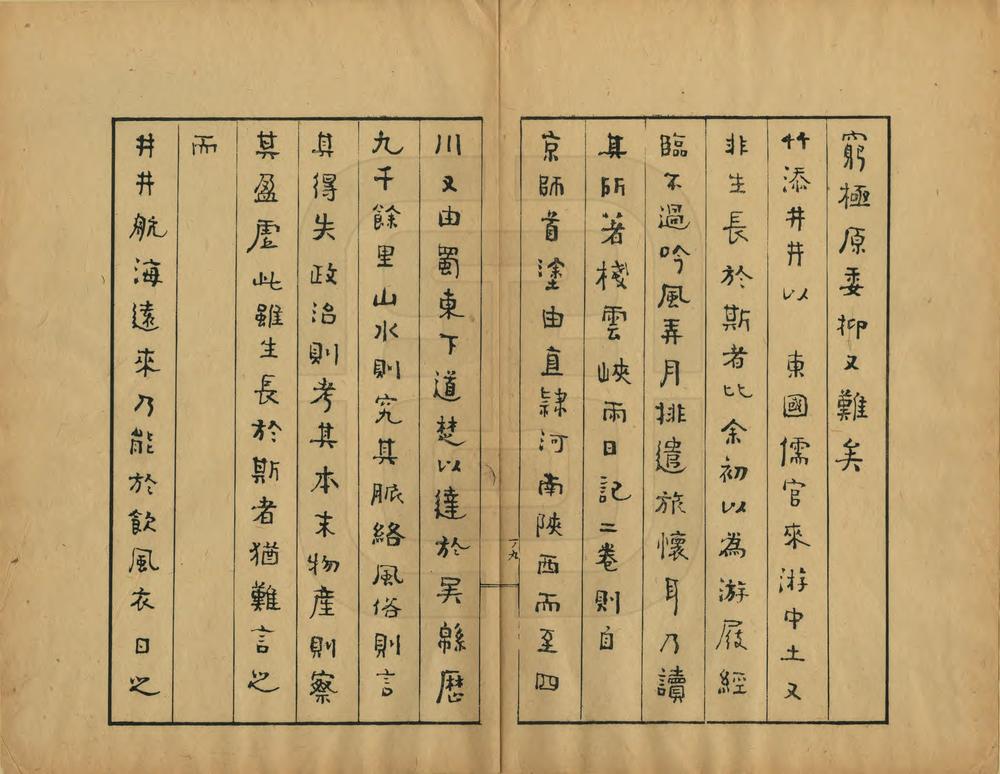 窮極原委抑又難矣
竹添井井以　東國儒官來游中土又
非生長於斯者比余初以為游屐經
臨不過吟風弄月排遣旅懷耳乃讀
其所著棧雲峽雨日記二卷則自
京師首塗由直隷河南陝西而至四
川又由蜀東下道楚以達於吴緜歷
九千餘里山水則究其脈絡風俗則言
其得失政治則考其本末物產則察
其盈虛此雖生長於斯者猶難言之
而
井井航海遠來乃能於飲風衣日之